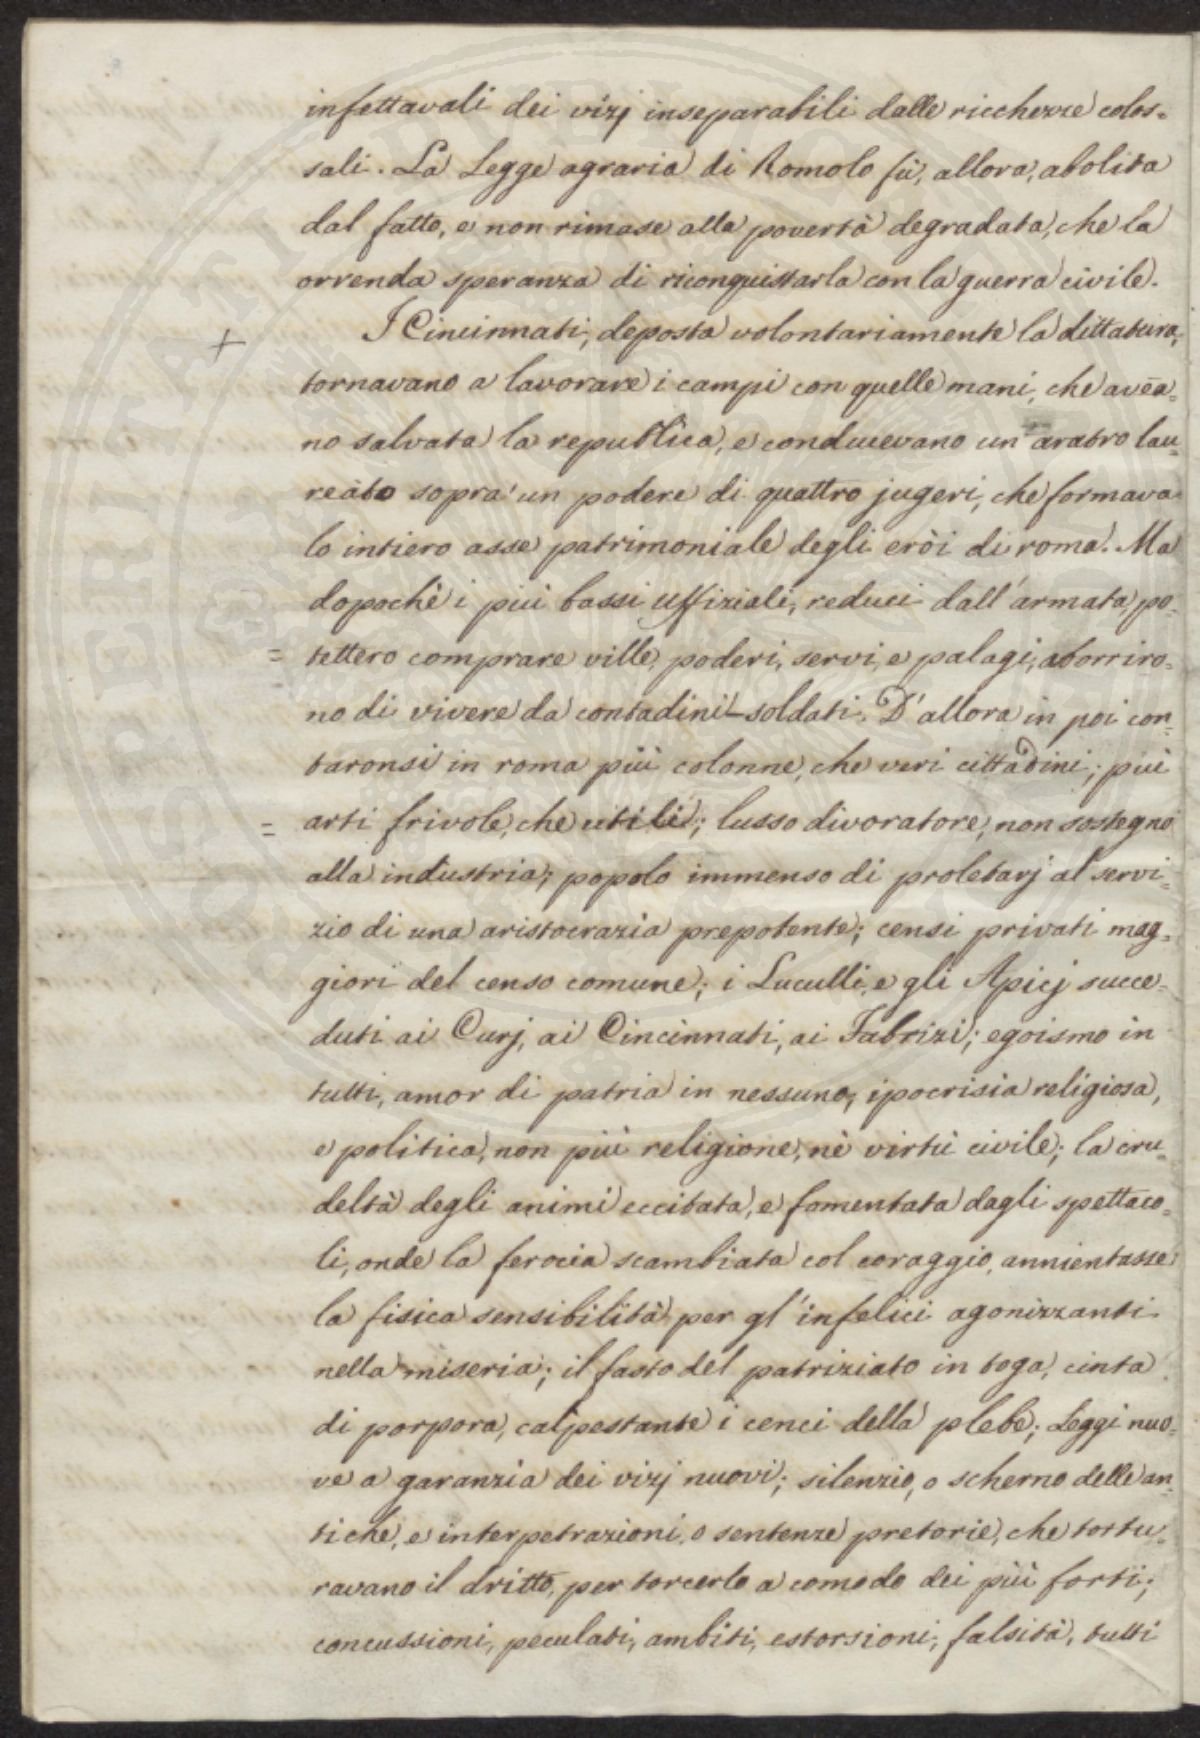 infettavali dei vizj inseparabili dalle ricchezze colos=
sali. La Legge agraria di Romolo fù, allora, abolita
dal fatto, e non rimase alla povertà degradata, che la
orrenda speranza di riconquistarla con la guerra civile.
+ I Cincinnati, deposta volontariamente la dittatura,
tornavano a lavorare i campi con quelle mani, che avèa=
no salvata la republica, e conducevano un aratro lau=
reàto sopra un podere di quattro jugeri, che formava
lo intiero asse patrimoniale degli eròi di roma. Ma
dopochè i più bassi uffiziali, reduci dall'armata, po=
= tettero comprare ville, poderi, servi, e palagi, aborriro=
no di vivere da contadini-soldati. D'allora in poi con=
taronsi in roma più colonne, che veri cittadini; più
= arti frivole, che utili; lusso divoratore, non sostegno
alla industria; popolo immenso di proletarj al servi=
zio di una aristocrazia prepotente; censi privati mag=
giori del censo comune; i Luculli, e gli Apicj succe=
duti ai Curj, ai Cincinnati, ai Fabrizi; egoismo in
tutti, amor di patria in nessuno; ipocrisia religiosa,
e politica, non più religione, nè virtù civile; la cru=
deltà degli animi eccitata, e fomentata dagli spettaco=
li, onde la ferocia scambiata col coraggio, annientasse
la fisica sensibilità per gl'infelici agonizzanti
nella miseria; il fasto del patriziato in toga, cinta
di porpora, calpestante i cenci della plebe; Leggi nuo=
ve a garanzia dei vizj nuovi; silenzio, o scherno delle an=
tiche, e interpetrazioni, o sentenze pretorie, che tortu=
ravano il dritto, per torcerlo a comodo dei più forti;
concussioni, peculati, ambiti, estorsioni, falsità, tutti
OSPERITATI PUBLICAE